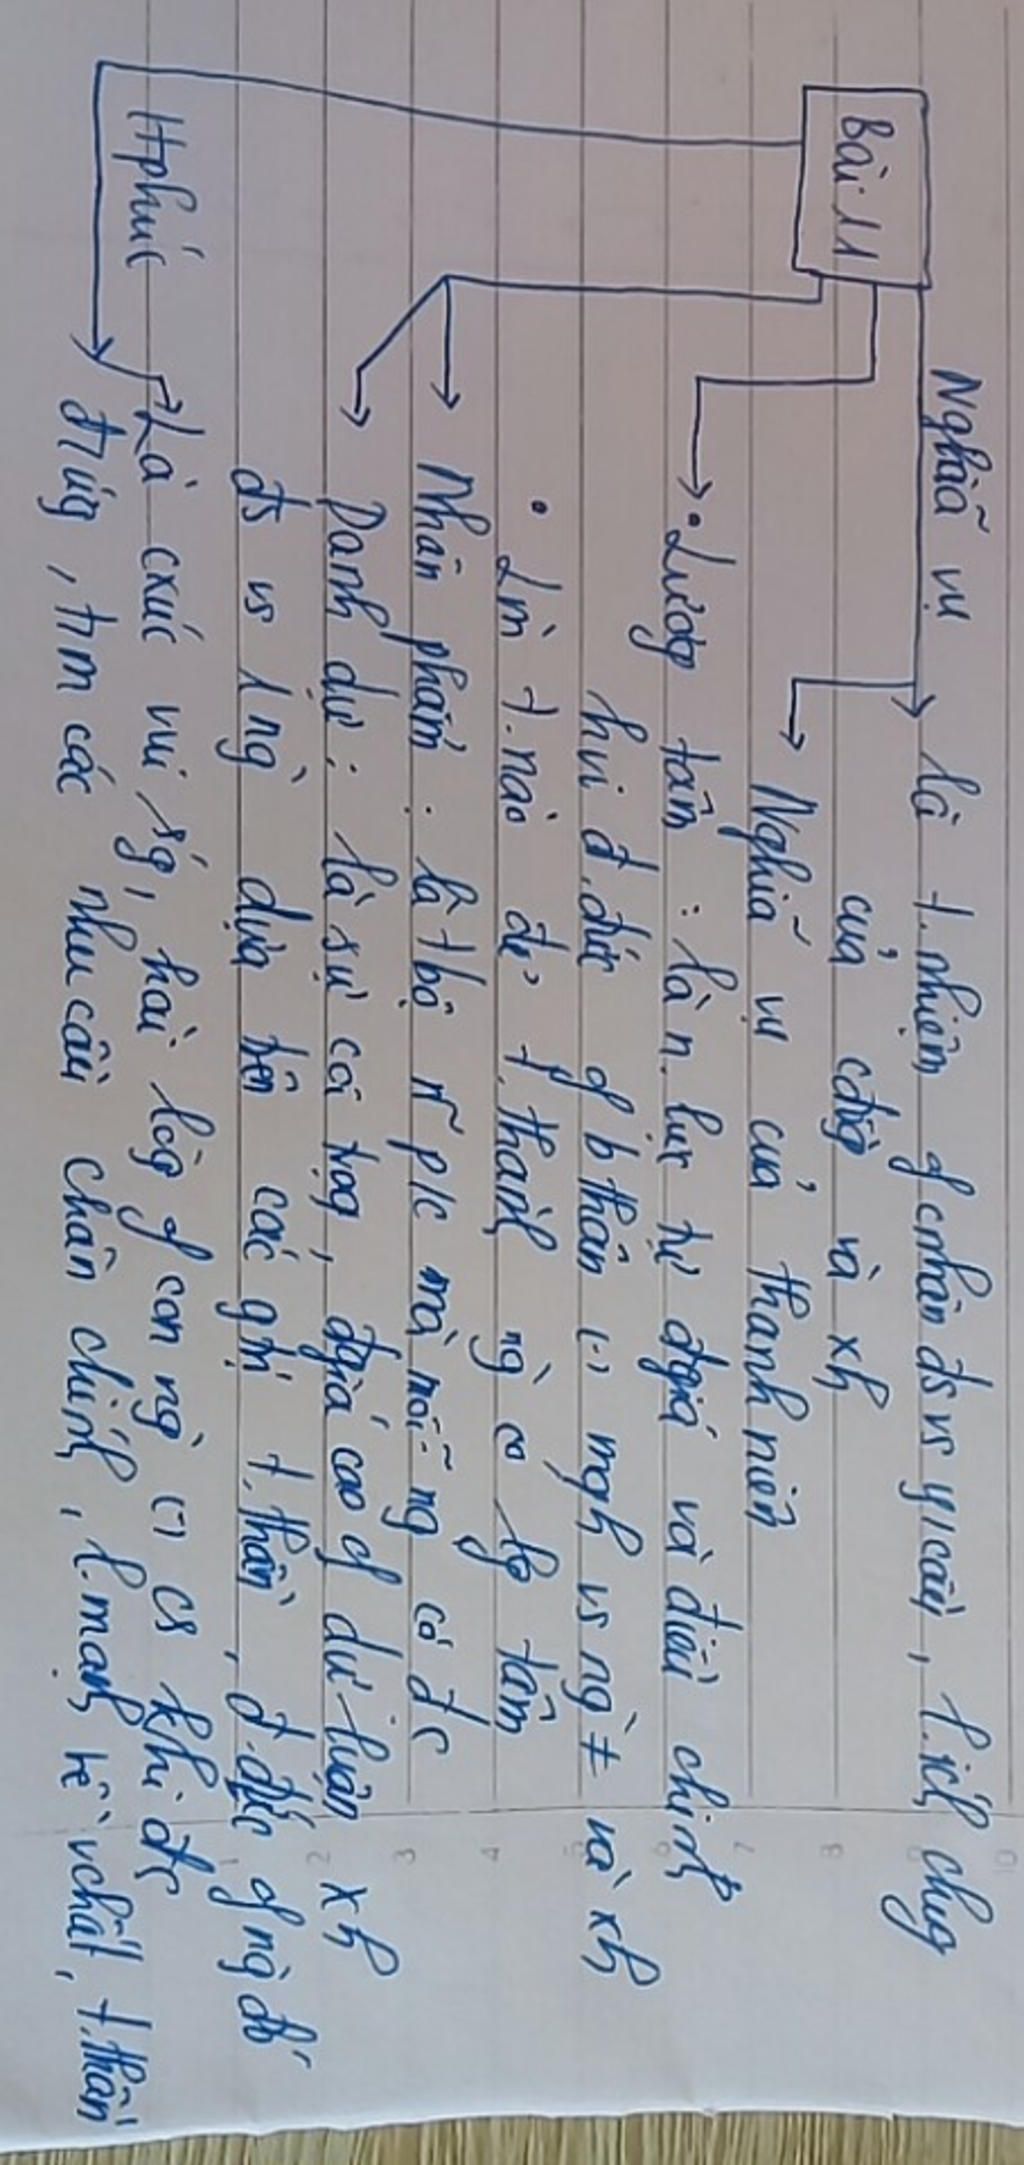 Bài 11
Nghĩa vụ
là t.nhiệm of cnhân đs vs y/cầu, l.ích chug
của cđồg và xh
Nghĩa vụ của thanh niên
• Lươg tâm : là n.lực tự đgiá và điều chỉnh
hvi đ.đức of b thân (-) mqh vs ng` ≠ và xh
• Lm` t.nào để t.thành ng` có lg tâm
Nhân phẩm : là tbộ n~ p/c mà mỗi ng có đc
Danh dự : là sự coi tọg, đgiá cao of dư luận xh
đs vs 1 ng` dựa trên các gtrị t.thần, đ.đức of ng` đó
Hphúc
Là cxúc vui sg, hài lòg of con ng` (-) cs khi đc
đ/ứg, t/m các nhu cầu chân chính, l.mạnh về vchất, t.thần